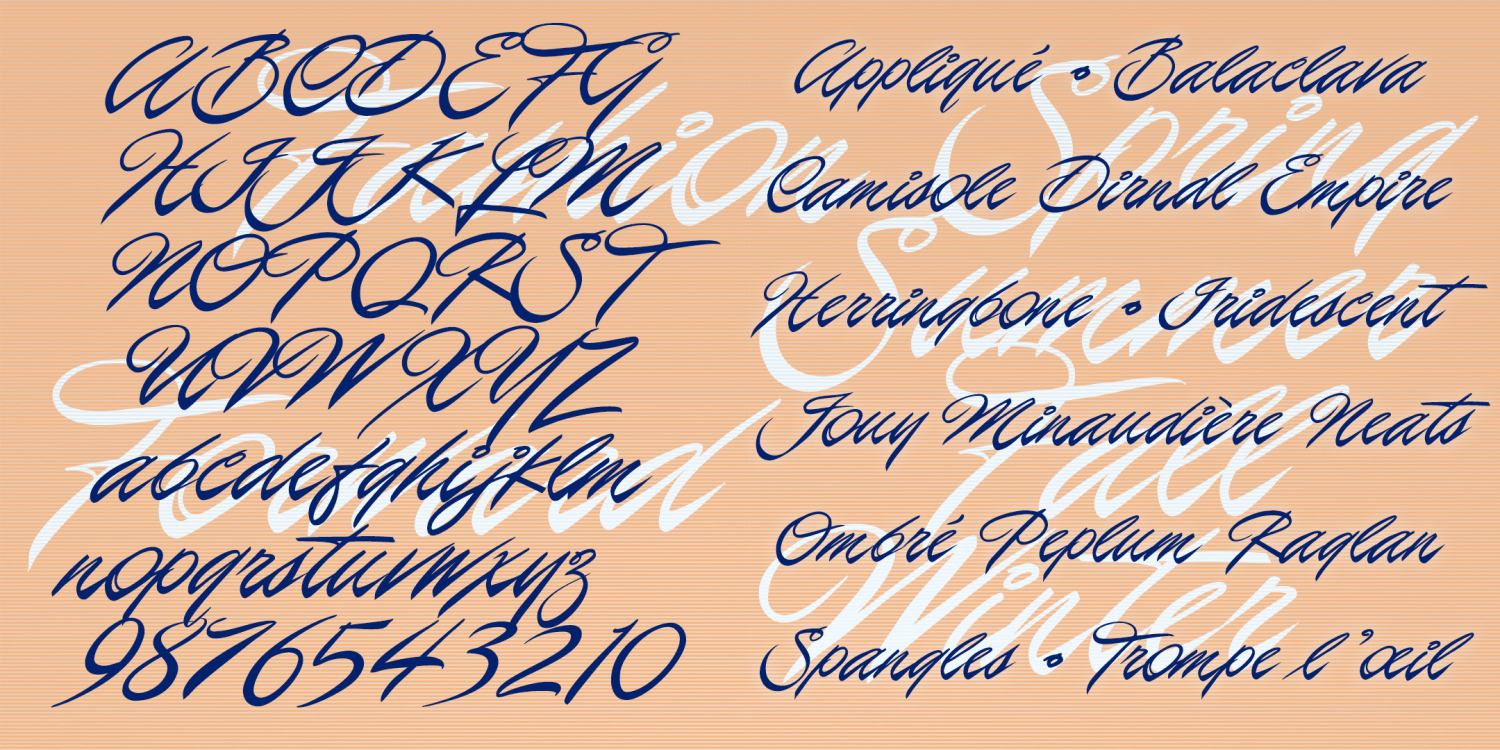 ABCDEFG
HIJKLM
NOPQRST
UVWXYZ
abcdefghijklm
nopqrstuvwxyz
9876543210
Appliqué • Balaclava
Camisole Dirndl Empire
Herringbone • Iridescent
Jouy Minaudière Neats
Ombré Peplum Raglan
Spangles • Trompe l’œil
Fashion
Forward
Spring
Summer
Fall
Winter